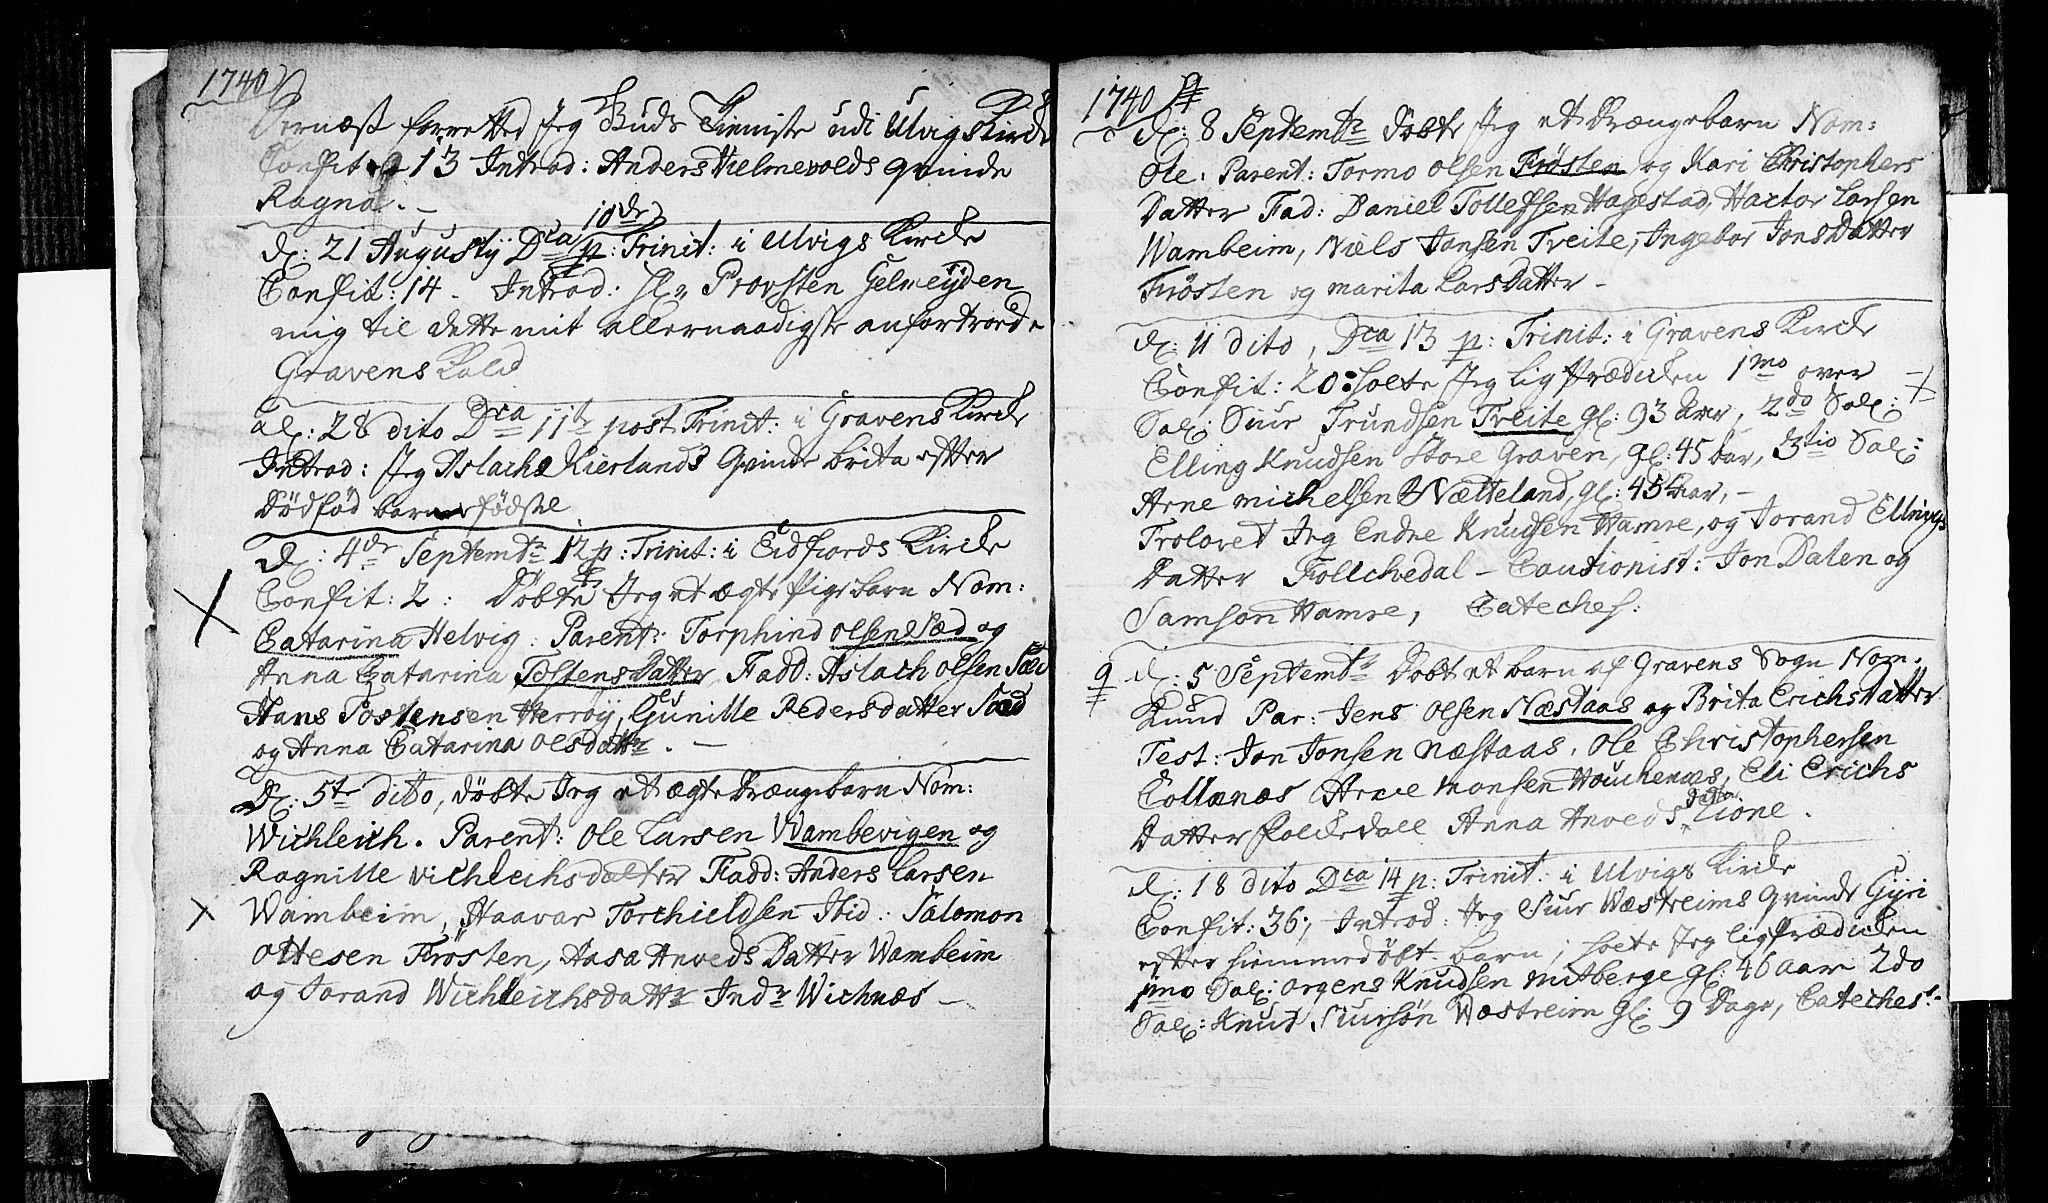 1740
Dernæst forretted Jeg Guds Tieniste udi Ulvigs Kirche
Confit 13 Introd: Anders Hielmevolds qvinde
Ragna. –
10de
d: 21 Augustij Dca p: Trinit: i Ulvigs Kirche
Confit: 14 – Introd: Hr Provsten Gelmeÿden
mig til dette mit allernaadigste anfortroede
Gravens Kald
d: 28 dito Dca 11te post Trinit: i Gravens Kirche
Introd: Jeg Aslachs Kierlands Qvinde brita efter
Dödföd barns födsel
d: 4de Septembr 12 p: Trinit: i Eidfiords Kirche
Confit: 2: Döbte Jeg et ægte Pigebarn Nom:
Catarina Helvig: Parent: Torphind olsen Sæd og
Anna Catarina Tostens Datter, Fadd: Aslach olsen Sæd
Hans Tostensen Herröÿ, Gunille Pedersdatter Sæd
og Anna Catarina olsdattr. –
d: 5te dito, döbte Jeg et ægte Drængebarn Nom:
Wichleich. Parent: Ole Larsen Wambevigen og
Ragnille Vichleichsdatter Fadd: Anders Larsen
Wambeim, Haavar Torchieldsen Ibid: Salomon
Ottesen Frösten, Aasa Anveds Datter Wambeim
og Torand Wichleichsdattr Indr Wichnæs –
1740
d: 8 Septembr Döbte Jeg et Drængebarn Nom:
Ole. Parent: Tormo Olsen Frösten og Kari Christophers
Datter Fad: Daniel Tollefsen Hagestad, Hactor Larsen
Wambeim, Niels Jonsen Tveite, Ingebor Jons Datter
Frösten og marita Lars Datter –
d: 11 dito, Dca 13 p: Trinit: i Gravens Kirche
Confit: 20: holte Jeg ligPrædichen 1mo over
Sal: Siur Trundsen Tveite gl: 93 Aar, 2do Sal:
Elling Knudsen Store Graven, gl: 45 Aar, 3tio Sal:
Arne michelsen Nætteland, gl: 45 Aar, –
Trolovet Jeg Endre Knudsen Hamre, og Torand Ellings
Datter Follchedal – Cautionist: Jon Dalen og
Samson Hamre, Cateches:
9 d: 5 Septembr Döbt et barn af Gravens Sogn Nom:
Knud Par: Jens Olsen Næstaas og Brita Erichs Datter
Test: Jon Jonsen næstaas, Ole Christophersen
Collanæs Arne monsen Houchenæs, Eli Erichs
Datter Folchedall Anna Anveds Datter Lione.
d: 18 dito Dca 14 p: Trinit: i Ulvigs Kirche
Confit: 36; Introd: Jeg Siur Wæstreims qvinde Gÿri
efter hiemmedöbt barn; holte Jeg ligPrædichen
1mo Sal: Orgens Knudsen mitberge gl: 46 aar 2do
Sal: Knud Siursön Wæstreim gl: 9 Dage, Cateches: –